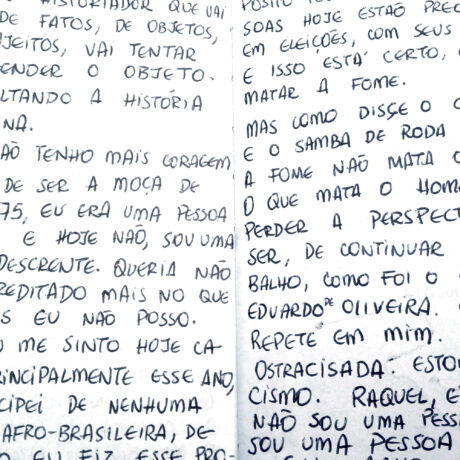 HISTORIADOR QUE VAI
DE FATOS, DE OBJETOS,
JEITOS, VAI TENTAR
ENDER O OBJETO.
LTANDO A HISTÓRIA
NA.
ÃO TENHO MAIS CORAGEM
DE SER A MOÇA DE
75, EU ERA UMA PESSOA
E HOJE NÃO, SOU UMA
DESCRENTE. QUERIA NÃO
REDITADO MAIS NO QUE
S EU NÃO POSSO.
ME SINTO HOJE CA
RINCIPALMENTE ESSE ANO,
CIPEI DE NENHUMA
AFRO-BRASILEIRA, DE
EU FIZ ESSE PRO-
SOAS HOJE ESTÃO PREC
EM ELEIÇÕES, COM SEUS
E ISSO ESTÁ CERTO,
MATAR A FOME.
MAS COMO DISSE O C
E O SAMBA DE RODA
A FOME NÃO MATA O
O QUE MATA O HOM
PERDER A PERSPECT
SER, DE CONTINUAR
BALHO, COMO FOI O
EDUARDO DE OLIVEIRA.
REPETE EM MIM.
OSTRACISADA. ESTOU
CISMO. RAQUEL, E
NÃO SOU UMA PESS
SOU UMA PESSOA